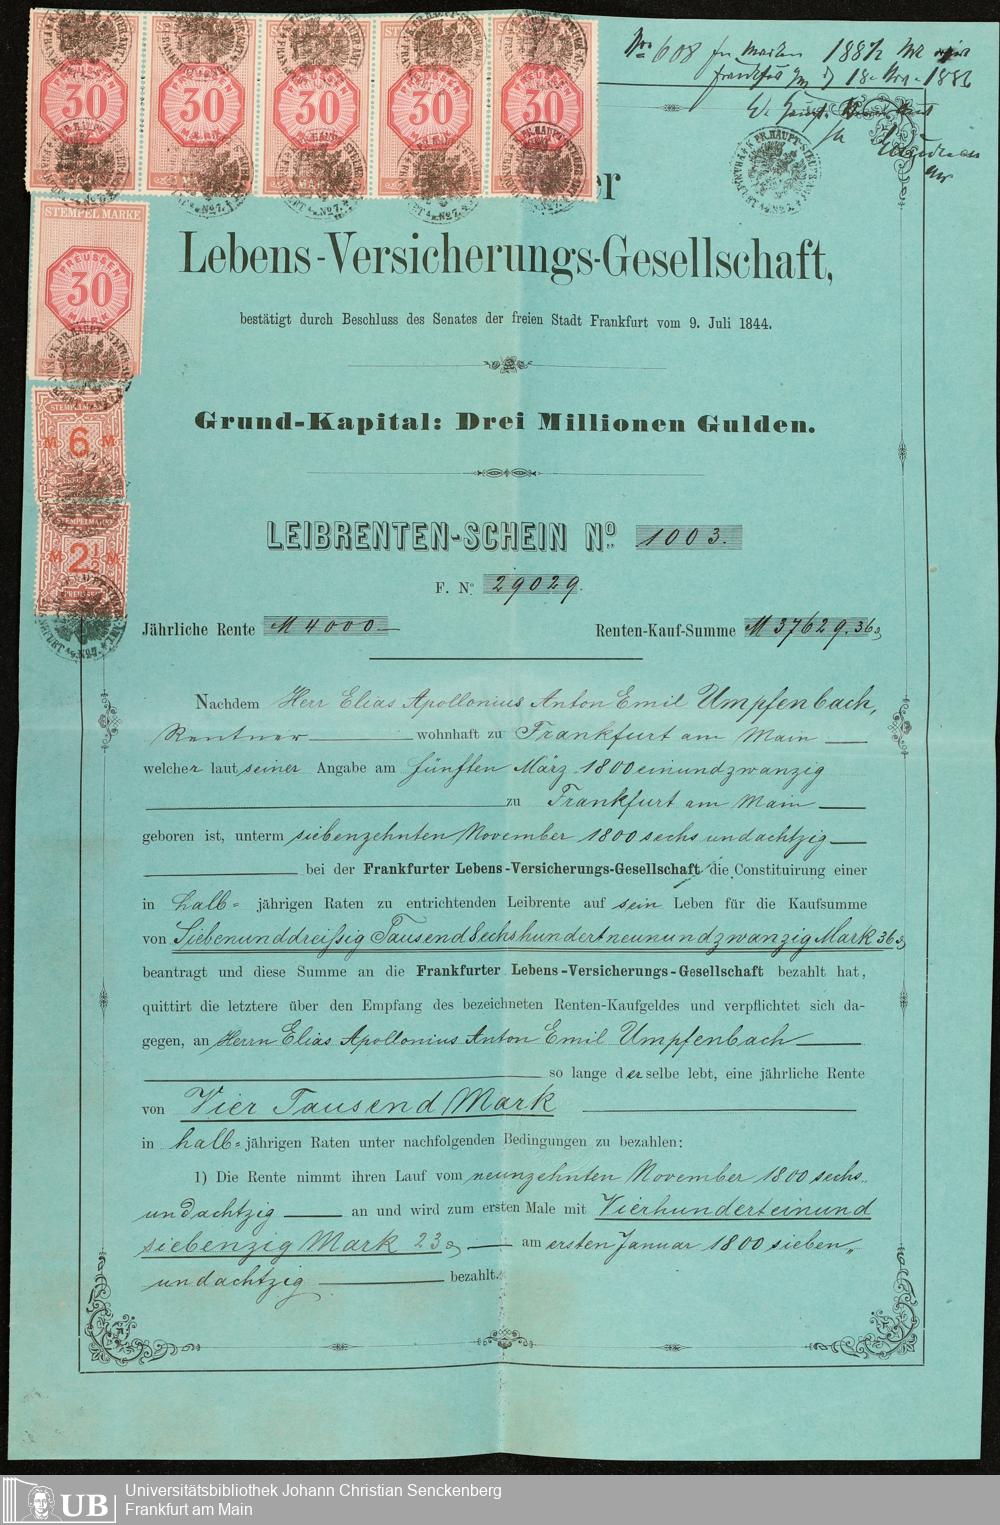 No 608
188½ Mk
Frankfurt a/M d 18. Nov. 1886
PREUSSEN 30 MARK
PREUSSEN 30 MARK
PREUSSEN 30 MARK
PREUSSEN 30 MARK
PREUSSEN 30 MARK
STEMPEL MARKE
PREUSSEN
30
MARK
STEMPELMARKE
M 6 M
STEMPELMARKE
M 2½ M
PREUSSEN
er
Lebens-Versicherungs-Gesellschaft,
bestätigt durch Beschluss des Senates der freien Stadt Frankfurt vom 9. Juli 1844.
Grund-Kapital: Drei Millionen Gulden.
LEIBRENTEN-SCHEIN No. 1003.
F. No. 29029.
Jährliche Rente M 4000.— Renten-Kauf-Summe M 37629.36 ₰
Nachdem Herr Elias Apollonius Anton Emil Umpfenbach,
Rentner wohnhaft zu Frankfurt am Main
welcher laut seiner Angabe am fünften März 1800 einundzwanzig
zu Frankfurt am Main
geboren ist, unterm siebenzehnten November 1800 sechs undachtzig
bei der Frankfurter Lebens-Versicherungs-Gesellschaft die Constituirung einer
in halb= jährigen Raten zu entrichtenden Leibrente auf sein Leben für die Kaufsumme
von Siebenunddreissig Tausend Sechshundertneunundzwanzig Mark 36 ₰
beantragt und diese Summe an die Frankfurter Lebens-Versicherungs-Gesellschaft bezahlt hat,
quittirt die letztere über den Empfang des bezeichneten Renten-Kaufgeldes und verpflichtet sich da-
gegen, an Herrn Elias Apollonius Anton Emil Umpfenbach
so lange derselbe lebt, eine jährliche Rente
von Vier Tausend Mark
in halb= jährigen Raten unter nachfolgenden Bedingungen zu bezahlen:
1) Die Rente nimmt ihren Lauf vom neunzehnten November 1800 sechs
undachtzig an und wird zum ersten Male mit Vierhunderteinund
siebenzig Mark 23 ₰ am ersten Januar 1800 sieben
undachtzig bezahlt.
UB Universitätsbibliothek Johann Christian Senckenberg
Frankfurt am Main